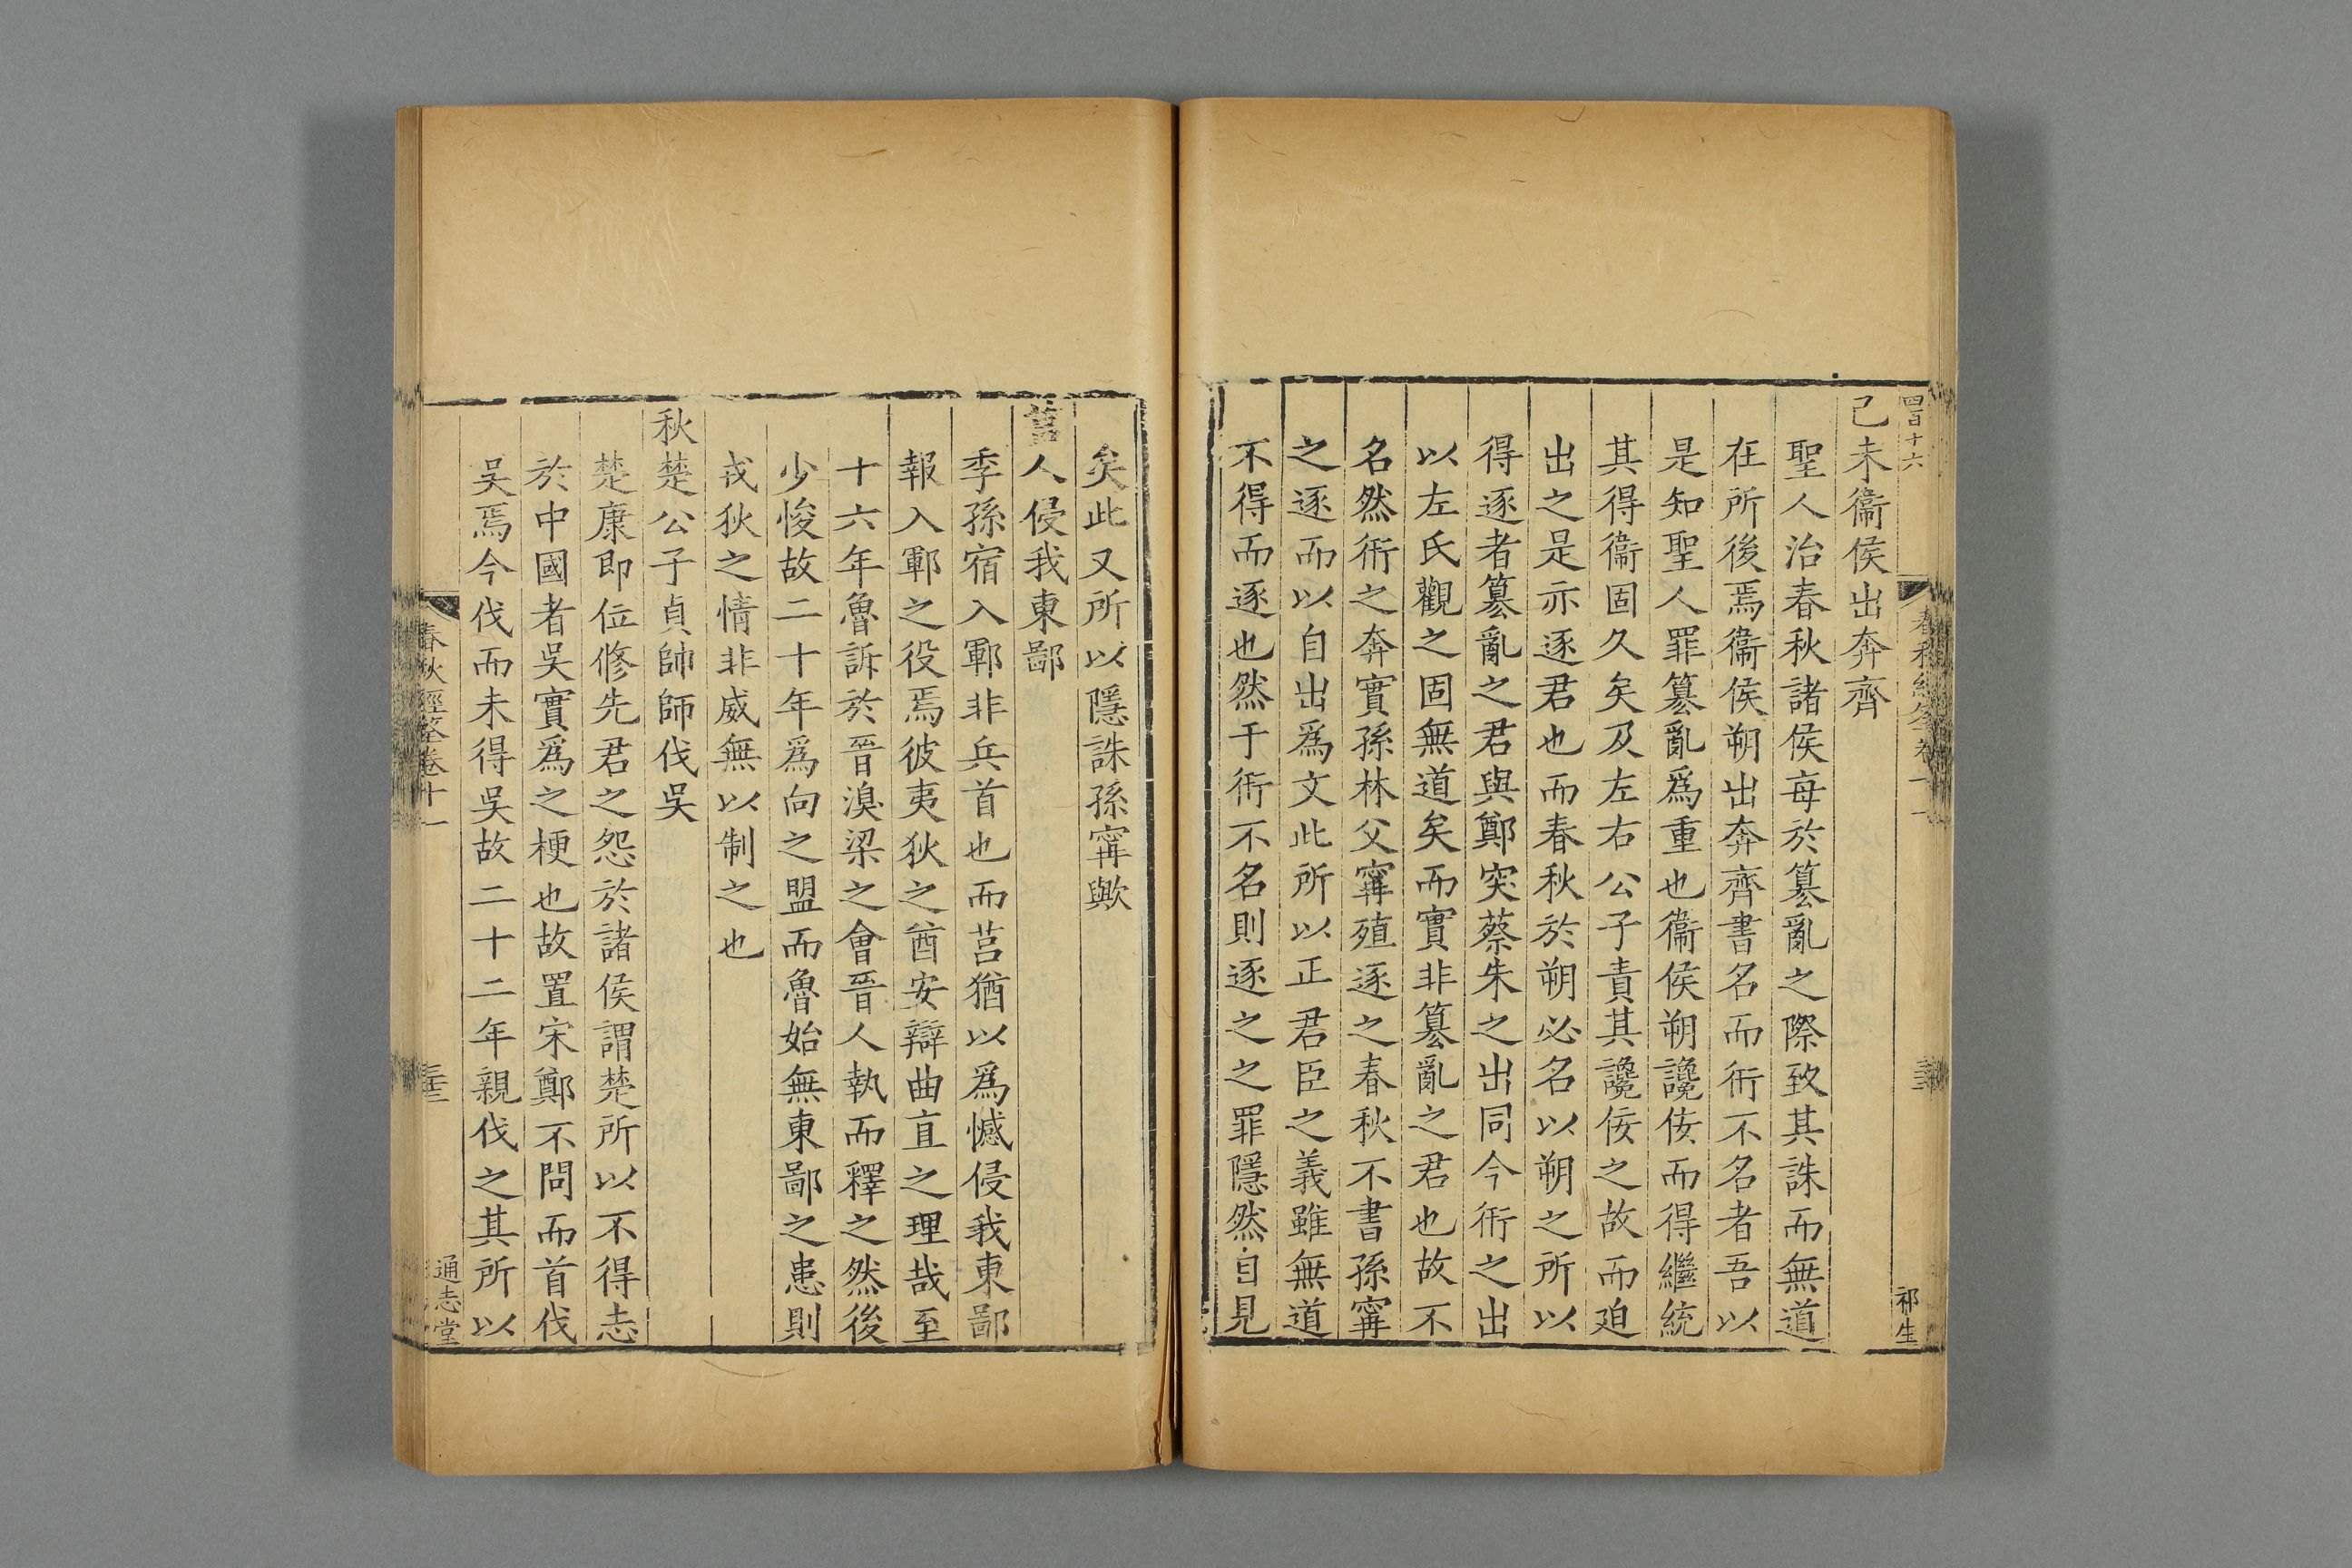 四百十六
春秋經筌卷十一
三十三
祁生
己未衞侯出奔齊
聖人治春秋諸侯毎於簒亂之際致其誅而無道
在所後焉衞侯朔出奔齊書名而衎不名者吾以
是知聖人罪簒亂爲重也衞侯朔讒佞而得繼統
其得衞固久矣及左右公子責其讒佞之故而廹
出之是亦逐君也而春秋於朔必名以朔之所以
得逐者簒亂之君與鄭突蔡朱之出同今衎之出
以左氏觀之固無道矣而實非簒亂之君也故不
名然衎之奔實孫林父甯殖逐之春秋不書孫甯
之逐而以自出爲文此所以正君臣之義雖無道
不得而逐也然于衎不名則逐之之罪隱然自見
矣此又所以隱誅孫甯歟
莒人侵我東鄙
季孫宿入鄆非兵首也而莒猶以爲憾侵我東鄙
報入鄆之役焉彼夷狄之酋安辯曲直之理哉至
十六年魯訴於晉湨梁之會晉人執而釋之然後
少悛故二十年爲向之盟而魯始無東鄙之患則
戎狄之情非威無以制之也
秋楚公子貞帥師伐吳
楚康即位修先君之怨於諸侯謂楚所以不得志
於中國者吳實爲之梗也故置宋鄭不問而首伐
吳焉今伐而未得吳故二十二年親伐之其所以
春秋經筌卷十一
三十三
通志堂